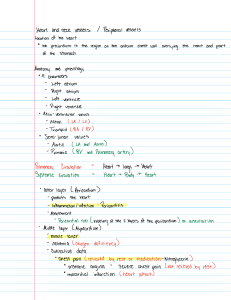 Heart and neck vessels / Peripheral vessels
Location of the heart
* The precordium is the region on the anterior chest wall overlying the heart and part
of the stomach
Anatomy and physiology
• 4 chambers
- Left atrium
- Right atrium
- Left ventricle
- Right ventricle
• Atrio-ventricular valves
- Mitral (LA / LV)
- Tricuspid (RA / RV)
• Semi lunar valves
- Aortic (LV and Aorta)
- Pulmonic (RV and Pulmonary artery)
Pulmonary Circulation = Heart → lungs → Heart
Systemic circulation = Heart → Body → Heart
• Outer layer (Pericardium)
- protects the heart
- Inflammation/infection: Pericarditis
- Assessment
• Pericardial rub (rubbing of the 2 layers of the pericardium) on auscultation
• Middle layer (Myocardium)
- muscle layer
- ischemia (oxygen deficiency)
- Subjective data
• Chest pain (relieved by rest or medication - nitroglycerin)
* ischemia angina - severe chest pain (not relieved by rest)
* myocardial infarction (heart attack)